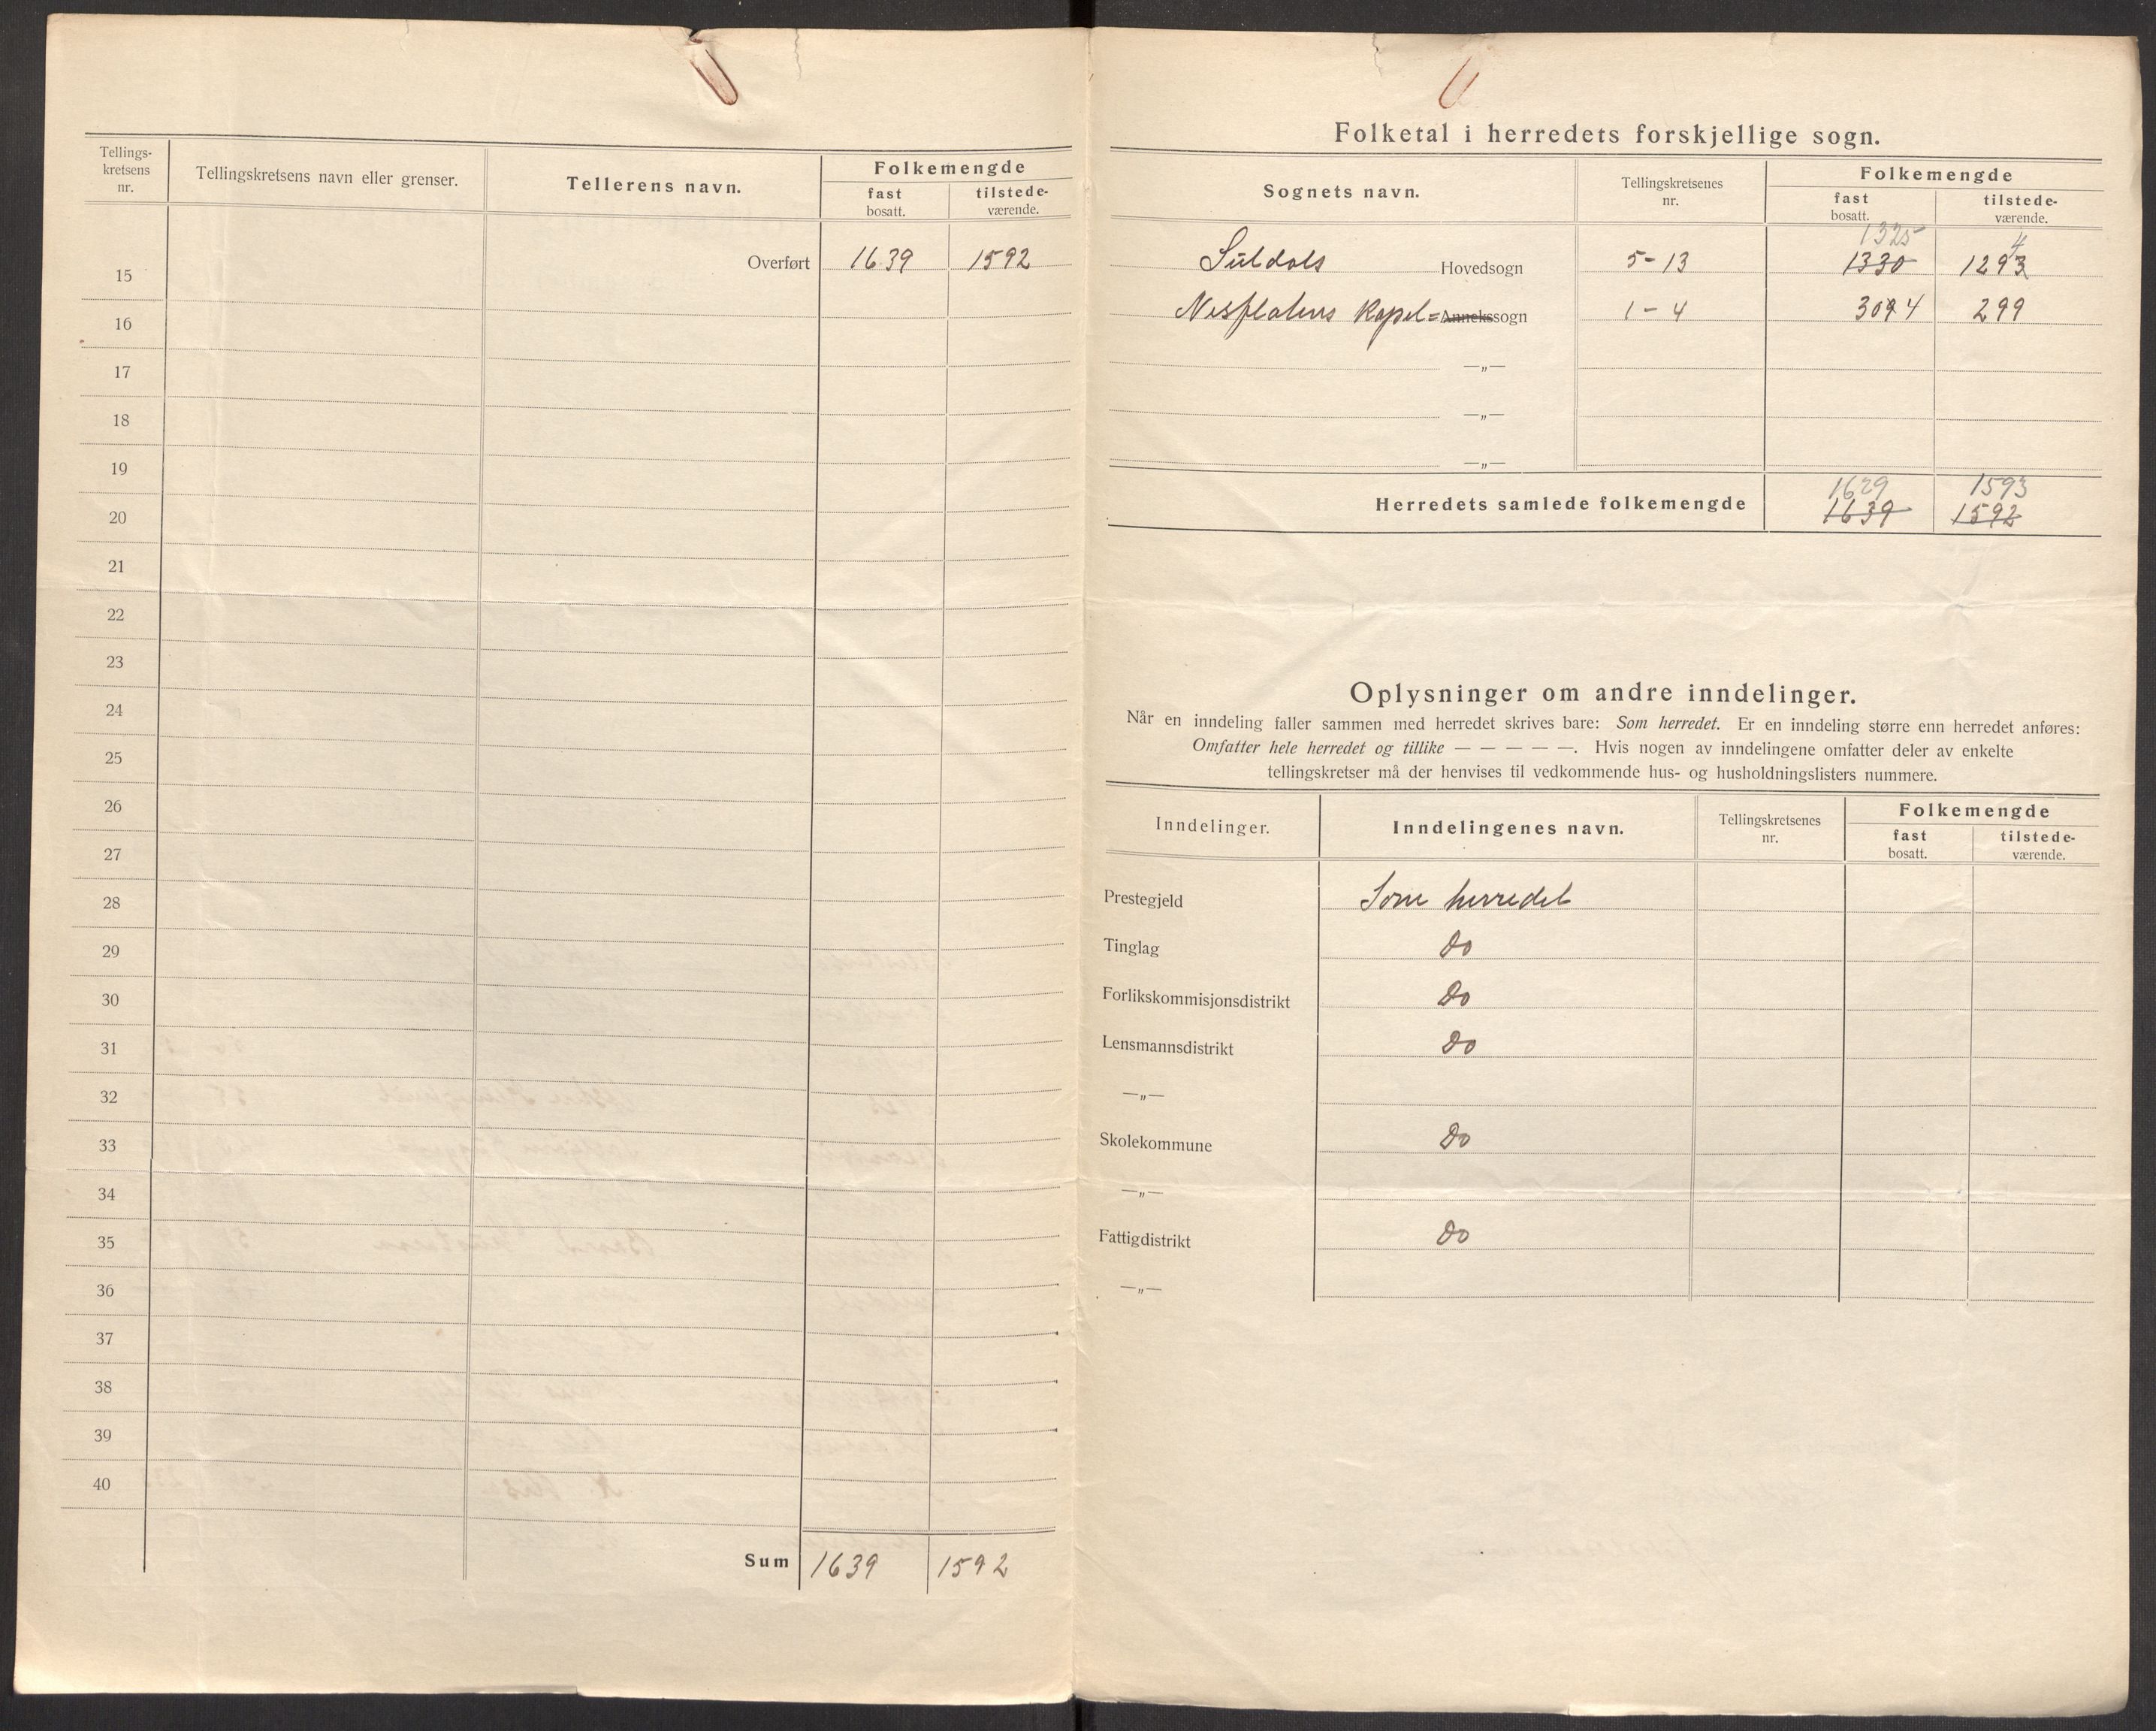 Tellings-
kretsens
nr.
Tellingskretsens navn eller grenser.
Tellerens navn.
Folkemengde
fast
bosatt.
tilstede-
værende.
Overført 1639 1592
15
16
17
18
19
20
21
22
23
24
25
26
27
28
29
30
31
32
33
34
35
36
37
38
39
40
Sum 1639 1592
Folketal i herredets forskjellige sogn.
Sognets navn.
Tellingskretsenes
nr.
Folkemengde
fast
bosatt.
tilstede-
værende.
1325 4
Suldals Hovedsogn 5-13 1330 1293
Nesflatens Kapel= Annekssogn 1-4 304 299
—„—
—„—
—„—
1629 1593
Herredets samlede folkemengde 1639 1592
Oplysninger om andre inndelinger.
Når en inndeling faller sammen med herredet skrives bare: Som herredet. Er en inndeling større enn herredet anføres:
Omfatter hele herredet og tillike — — — — —. Hvis nogen av inndelingene omfatter deler av enkelte
tellingskretser må der henvises til vedkommende hus- og husholdningslisters nummere.
Inndelinger.
Inndelingenes navn.
Tellingskretsenes
nr.
Folkemengde
fast
bosatt.
tilstede-
værende.
Prestegjeld Som herredet
Tinglag Do
Forlikskommisjonsdistrikt Do
Lensmannsdistrikt Do
—„—
Skolekommune Do
—„—
Fattigdistrikt Do
—„—